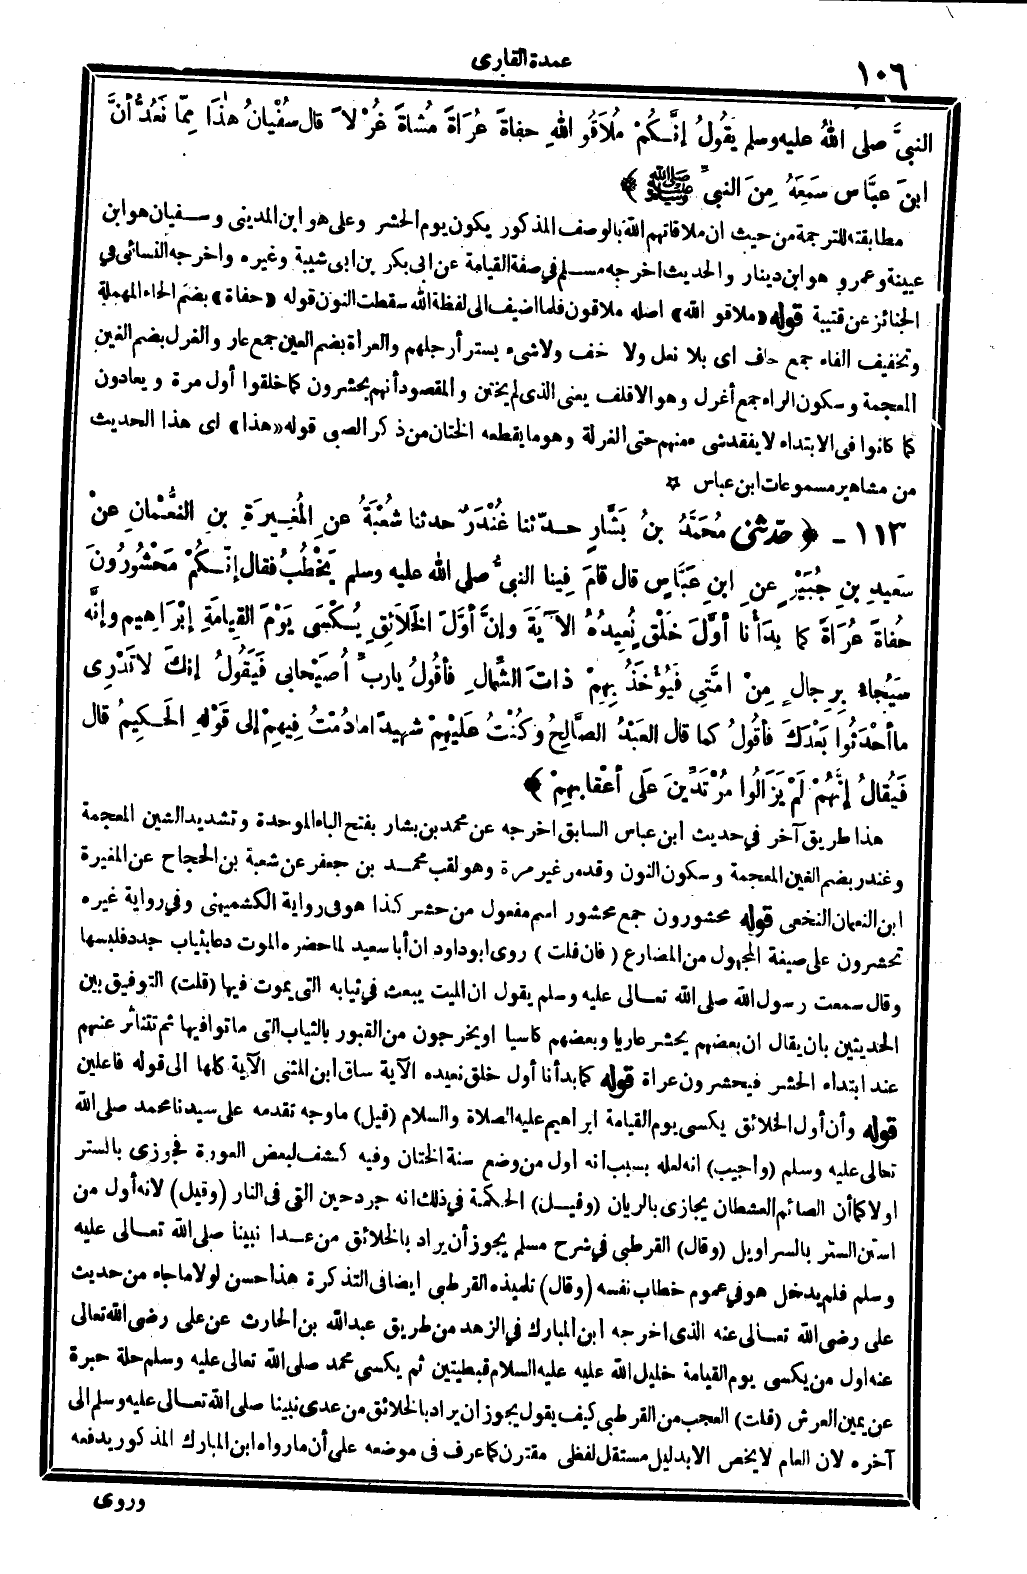 ١٠٦
عمدة القارى
النبىَّ صلى اللهُ عليه وسلم يقُولُ إنَّكُمْ مُلاَقُو اللهِ حفاةَ عُرَاةَ مُشاةَ غُرْلاَ قال سُفْيانُ هٰذَا مِمَّا نَعُدُّ أنَّ
ابنَ عبَّاس سَمِعَهُ مِنَ النبىِّ ﷺ ﴾
مطابقته للترجمة من حيث ان ملاقاتهم الله بالوصف المذكور يكون يوم الحشر وعلى هو ابن المدينى وسفيان هو ابن
عيينة وعمرو هو ابن دينار والحديث اخرجه مسلم في صفة القيامة عن ابى بكر بن ابى شيبة وغيره واخرجه النسائى في
الجنائز عن قتيبة قوله «ملاقو الله» اصله ملاقون فلما اضيف الى لفظة الله سقطت النون قوله «حفاة» بضم الحاء المهملة
وتخفيف الفاء جمع حاف اى بلا نعل ولا خف ولاشىء يستر أرجلهم والعراة بضم العين جمع عار والغرل بضم الغين
المعجمة وسكون الراء جمع أغرل وهو الاقلف يعنى الذى لم يختن والمقصود أنهم يحشرون كما خلقوا أول مرة ويعادون
كما كانوا فى الابتداء لا يفقد شىء منهم حتى الغرلة وهو ما يقطعه الختان من ذكر الصبى قوله «هذا» اى هذا الحديث
من مشاهير مسموعات ابن عباس ✡
١١٣ ــ ﴿ حَدَّثَنى مُحَمَّدُ بنُ بَشَّارٍ حدّثنا غُنْدَرٌ حدثنا شُعْبَةُ عنِ المُغِيرَةِ بنِ النُّعْمانِ عنْ
سَعيدِ بنِ جُبَيْرٍ عنِ ابنِ عَبَّاسٍ قال قامَ فِينا النبىُّ صلى الله عليه وسلم يَخْطُبُ فقال إنَّكُمْ مَحْشُورُونَ
حُفاةَ عُرَاةَ كما بدَأْنا أوَّلَ خَلْقٍ نُعِيدُهُ الآيَةَ وإنَّ أوَّلَ الخَلائِقِ يُكْسَى يَوْمَ القِيامَةِ إبْرَاهِيم وإنَّه
سَيُجاءُ بِرِجالٍ مِنْ امَّتي فَيُؤْخَذُ بِهِمْ ذاتَ الشِّمالِ فأقُولُ ياربِّ اُصَيْحابى فَيَقُولُ إنكَ لاتَدْرِى
ماأحْدَثُوا بَعْدَكَ فأقُولُ كما قال العَبْدُ الصَّالِحُ وكُنْتُ عَلَيْهِمْ شهيداً مادُمْتُ فِيهِمْ إلى قَوْلِهِ الحَكِيمُ قال
فَيُقالُ إنَّهُمْ لَمْ يَزَالُوا مُرْتَدِّينَ عَلَى أعْقابِهِمْ ﴾
هذا طريق آخر في حديث ابن عباس السابق اخرجه عن محمد بن بشار بفتح الباء الموحدة وتشديد الشين المعجمة
وغندر بضم الغين المعجمة وسكون النون وقد مر غير مرة وهو لقب محمد بن جعفر عن شعبة بن الحجاج عن المغيرة
ابن النعمان النخعى قوله محشورون جمع محشور اسم مفعول من حشر كذا هو فى رواية الكشميهنى وفي رواية غيره
تحشرون على صيغة المجهول من المضارع (فان قلت) روى ابو داود ان أبا سعيد لما حضره الموت دعا بثياب جدد فلبسها
وقال سمعت رسول الله صلى الله تعالى عليه وسلم يقول ان الميت يبعث في ثيابه التى يموت فيها (قلت) التوفيق بين
الحديثين بان يقال ان بعضهم يحشر عاريا وبعضهم كاسيا او يخرجون من القبور بالثياب التى ماتوا فيها ثم تتناثر عنهم
عند ابتداء الحشر فيحشرون عراة قوله كما بدأنا أول خلق نعيده الآية ساق ابن المثنى الآية كلها الى قوله فاعلين
قوله وأن أول الخلائق يكسى يوم القيامة ابراهيم عليه الصلاة والسلام (قيل) ما وجه تقدمه على سيدنا محمد صلى الله
تعالى عليه وسلم (واجيب) انه لعله بسبب انه اول من وضع سنة الختان وفيه كشف لبعض العورة فجوزى بالستر
اولا كما أن الصائم العشطان يجازى بالريان (وقيل) الحكمة في ذلك انه جرد حين القى فى النار (وقيل) لانه أول من
استن الستر بالسراويل (وقال) القرطبى في شرح مسلم يجوز أن يراد بالخلائق من عدا نبينا صلى الله تعالى عليه
وسلم فلم يدخل هو في عموم خطاب نفسه (وقال) تلميذه القرطبى ايضا فى التذكرة هذا حسن لولا ما جاء من حديث
على رضى الله تعالى عنه الذى اخرجه ابن المبارك في الزهد من طريق عبد الله بن الحارث عن على رضى الله تعالى
عنه اول من يكسى يوم القيامة خليل الله عليه عليه السلام قبطيتين ثم يكسى محمد صلى الله تعالى عليه وسلم حلة حبرة
عن يمين العرش (قلت) العجب من القرطبى كيف يقول يجوز ان يراد بالخلائق من عدى نبينا صلى الله تعالى عليه وسلم الى
آخره لان العام لا يخص الا بدليل مستقل لفظى مقترن كما عرف فى موضعه على أن ما رواه ابن المبارك المذكور يدفعه
وروى